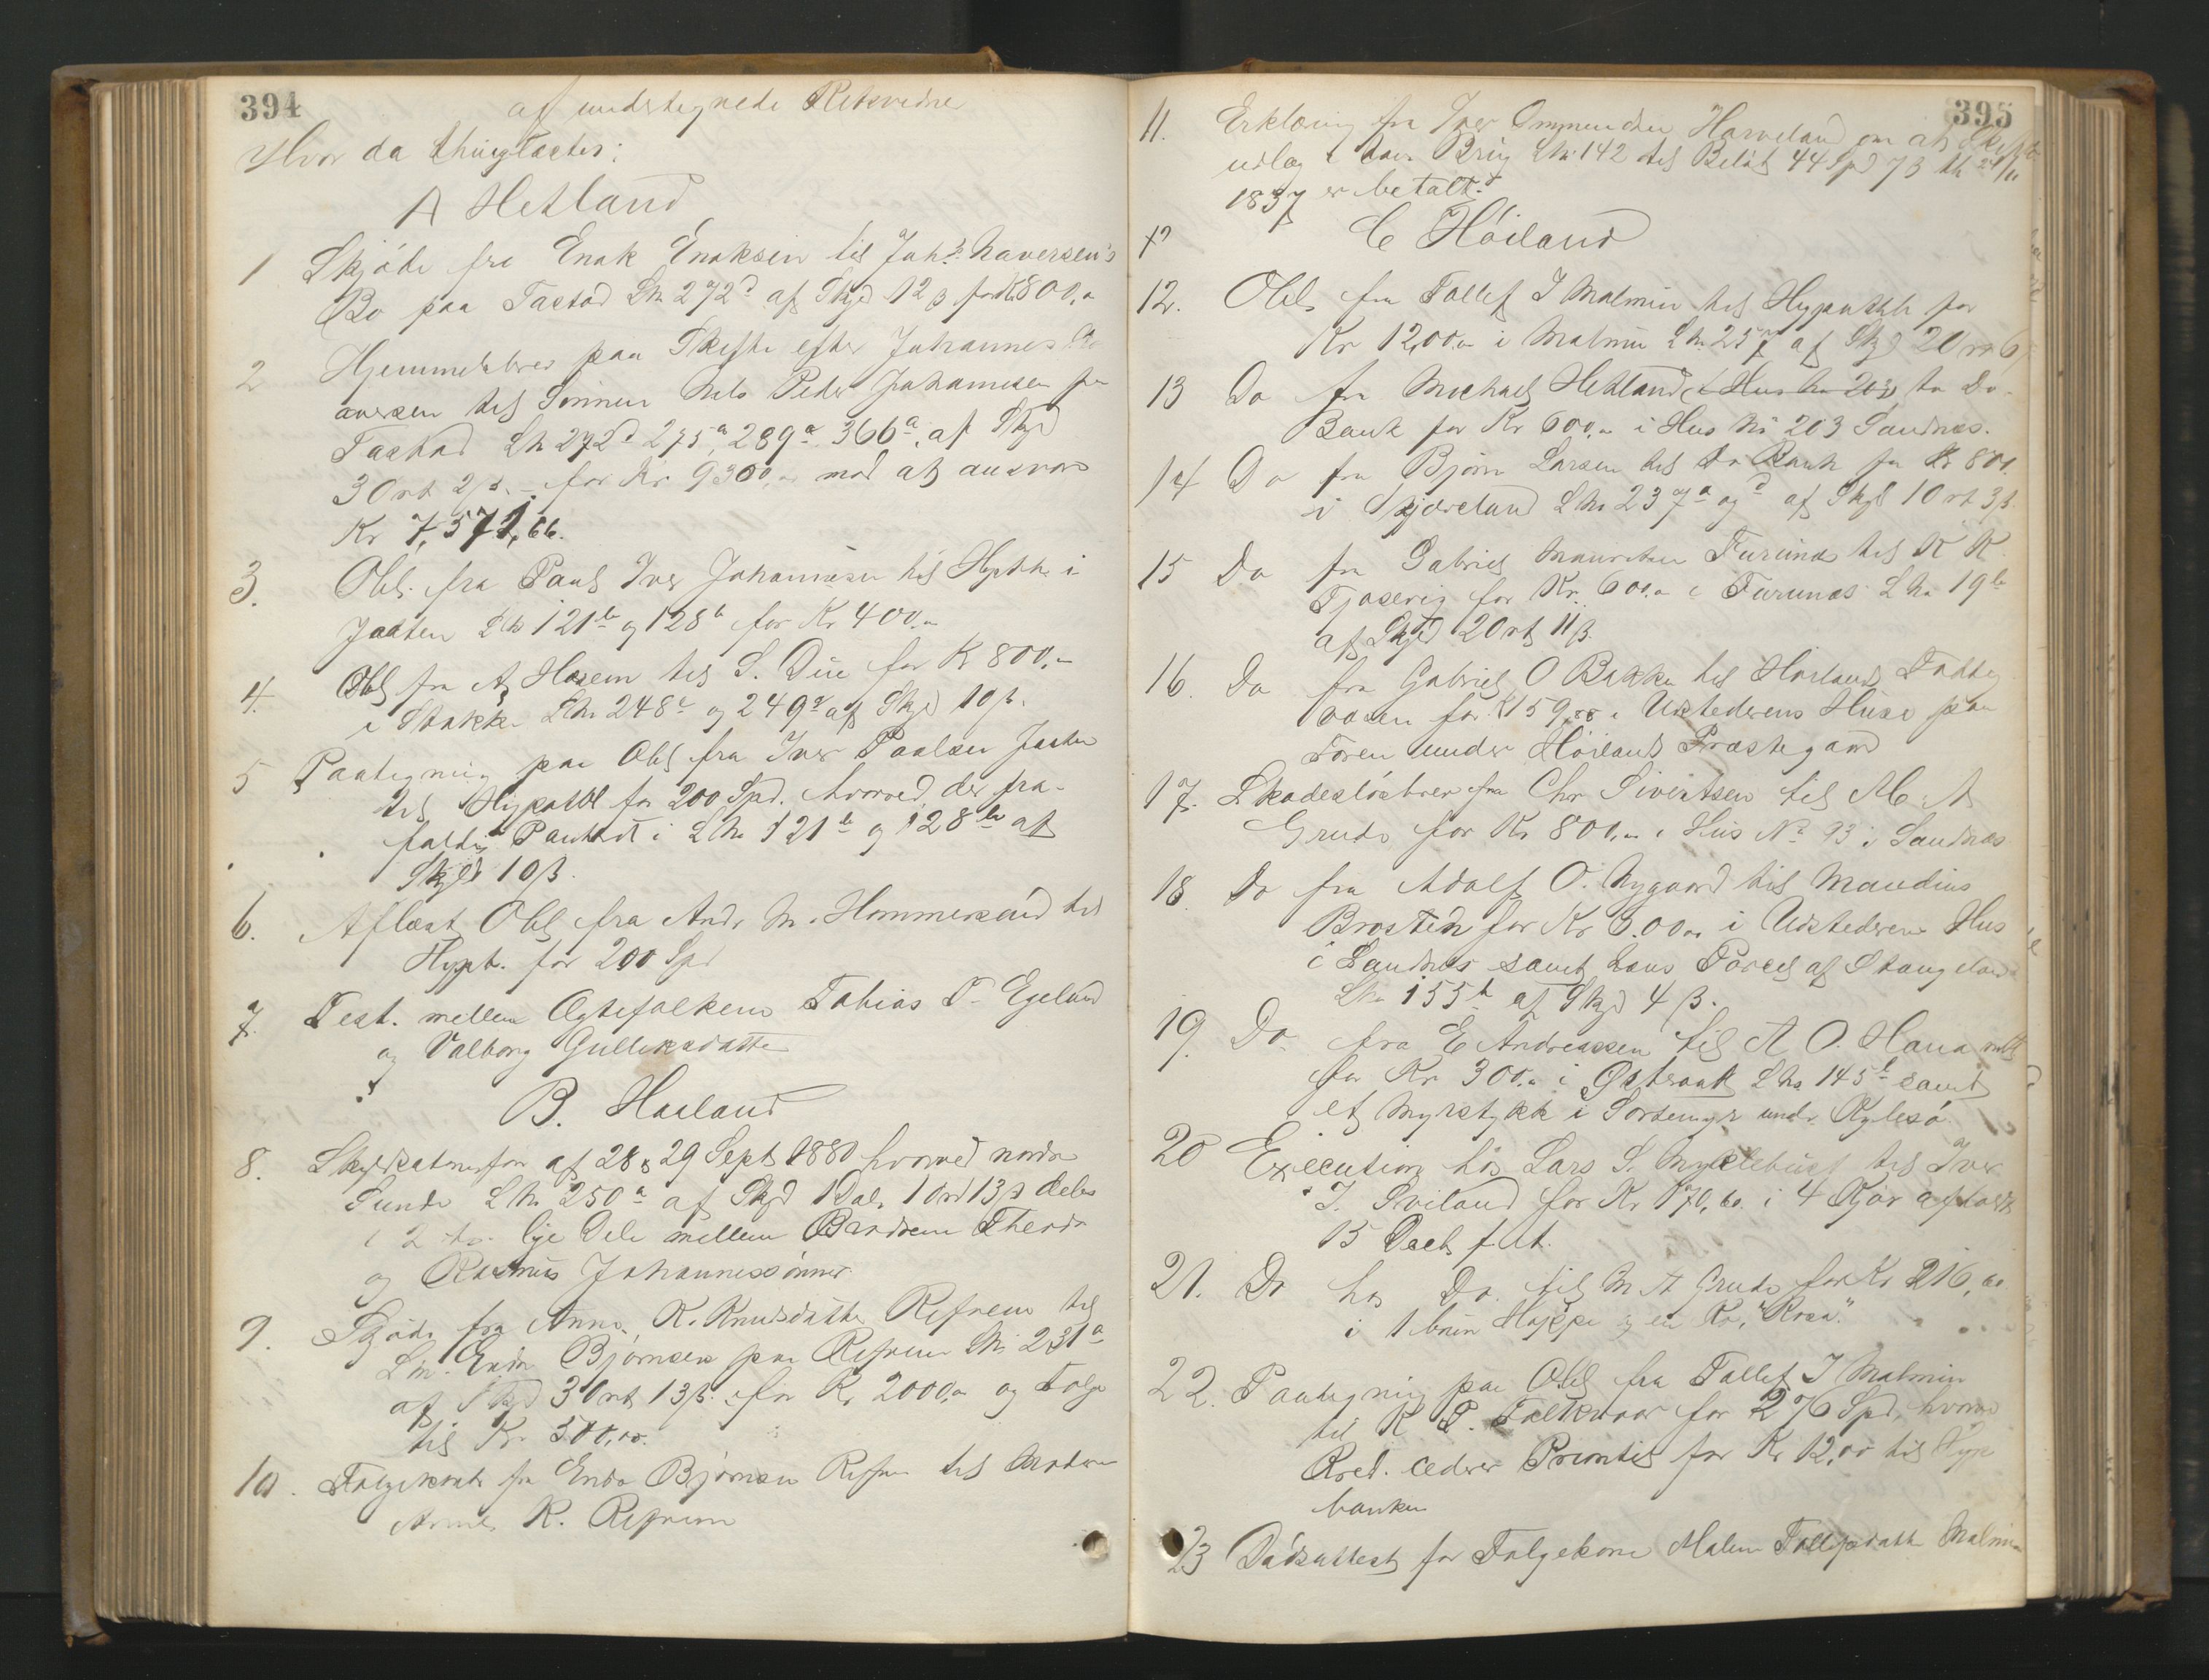 394
af undertegnede Retsvidner
Hvor da thinglæstes:
A Hetland
1 Skjöde fra Enok Enoksen til Joh.s Naversen's
Bo paa Tastad Lh 272d af Skyd 12 ß for Kr 800,-
2 Hjemmelsbrev paa Skifte efter Johannes
aversen til Sönnen Nels Peder Johannesen paa
Tastad Lh 272d 275a, 289a 366a, af Skyd
3 Ort 2 ß. - for Kr 9300,- mod at ansvare
Kr 7,571,66.
3. Obl. fra Paul Iver Johannesen til Hypthk i
Jaatten Lh 121b og 128b for Kr 400.-
4. Obl fra A Hosem til S. Due for K 800,-
i Stokke Lh 248c og 249a af Skyd 10 ß.
5 Paategning paa Obl fra Iver Paalsen Jaatten
til Hypothk for 200 Spd. hvorved der fra-
faldes Panteret i Lh 121b og 128b af
Skyld 10 ß.
6. Aflæst Obl fra Andr M. Hommersand til
Hypt. for 200 Spd
7. Test. mellem Ægtefolkene Tobias T. Egeland
og Valborg Gulliksdatter
B. Haaland
8. Skyldsætnesforr af 28 & 29 Sept 1880 hvorved nordre
Sunde Lh 250a af Skyd 1 Dal. 1 Ort 13 ß deles
i 2 lige Dele mellem Brödrene Theodor
og Rasmus Johannessönner.
9. Skjöde fra Anna K. Knudsdatter Refsnes til
Sön Endre Björnsen paa Refsnes Lh 231a
af Skyd 3 Ort 13 ß. for Kr 2000,- og Folge
til Kr. 500,00.
10. Folgekont fra Endre Björnsen Refsnes til Moderen
Anna K. Refsnes
395
11. Erklæring fra Iver Ommundsen Harveland om at Skifte
udlæg i hans Brug Lh 142 til Belöb 44 Spd 73 ß 24/11
1837 er betalt.
C Höiland
12. Obl fra Tollef I Malmin til Hypothbk for
Kr 1200.- i Malmin Lh 257 af Skyd 2 Ort 6
13 Do fra Michael Hetland (i Hus No 203) to Do
Bank for Kr 600,- i Hus No 203 Sandnæs.
14 Do fra Björn Larsen til Do Bank for Kr 800
i Skjæveland Lh 237a og d af Skyld 1 Ort 3 ß.
15 Do fra Gabriel Mauritzen Furenes til K K.
Tjosevig for Kr. 600.- i Furenæs Lh 19b
af Skyld 2 Ort 11 ß.
16. Do fra Gabriel O Bakke til Höilands Fattig
væsen for K 159,88 i Udstederens Huse paa
Foren under Höilands Præstegaard
17. Skadeslösbrev fra Chr Sivertsen til M. A
Grude for Kr 800,- i Hus No 93 i Sandnæs
18. Do fra Adolf O. Nygaard til Maudius
Brosted for Kr 600.- i Udstederens Hus
i Sandnæs samt hans Parcel af Stangeland
Lh 155h af Skyd 4 ß.
19. Do. fra E Andreassen til A O. Hana
for Kr 300.- i Østraat Lh 145b samt
et Myrstykke i Sortemyr under
20 Execution hos Lars S. Myklebust til Iver
T. Sviland for Kr 170,60. i 4 Kjör afholdt
15 Decb f A.
21. Do hos Do. til M A Grude for Kr 216,60
i 1 brun Hoppe og en Ko, "Rosa".
22. Paategning paa Obl fra Tollef I Malmin
til K P. Folkvor for 276 Spd, hvorved
Kred. cederer Prioritet for Kr 12,00 til Hyp
banken
23 Dödsattest for Folgekone Malene Tollefsdatter Malmin